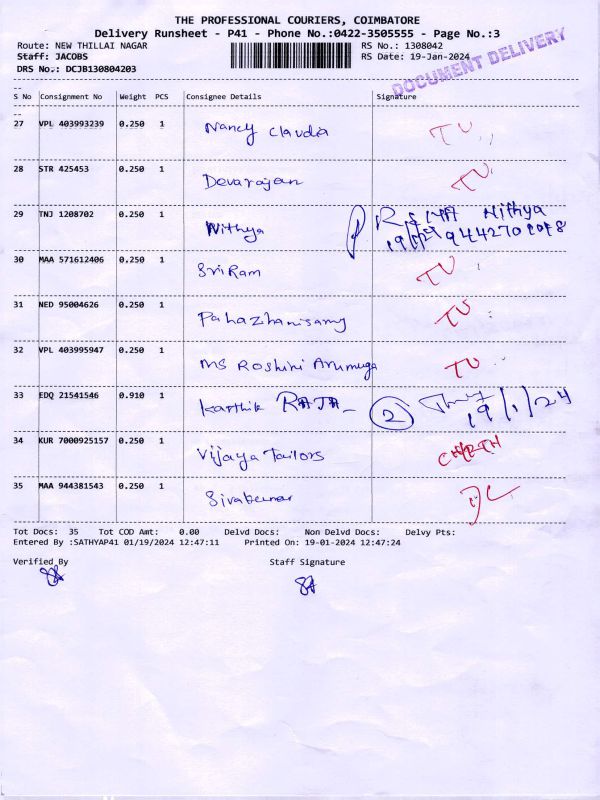 THE PROFESSIONAL COURIERS, COIMBATORE
Delivery Runsheet - P41 - Phone No.:0422-3505555 - Page No.:3
Route: NEW THILLAI NAGAR RS No.: 1308042
Staff: JACOBS RS Date: 19-Jan-2024
DRS No.: DCJB130804203
DOCUMENT DELIVERY
S No Consignment No Weight PCS Consignee Details Signature
27 VPL 403993239 0.250 1 Nancy Claudia TU
28 STR 425453 0.250 1 Devarajan TU
29 TNJ 1208702 0.250 1 Nithya Nithya
30 MAA 571612406 0.250 1 Sri Ram TU
31 NED 95004626 0.250 1 Pahazhanisamy TU
32 VPL 403995947 0.250 1 MS Roshini Arumuga TU
33 EDQ 21541546 0.910 1 Karthik RAJA 2 19/1/24
34 KUR 7000925157 0.250 1 Vijaya Tailors
35 MAA 944381543 0.250 1 Sivakumar DL
Tot Docs: 35 Tot COD Amt: 0.00 Delvd Docs: Non Delvd Docs: Delvy Pts:
Entered By :SATHYAP41 01/19/2024 12:47:11 Printed On: 19-01-2024 12:47:24
Verified By Staff Signature